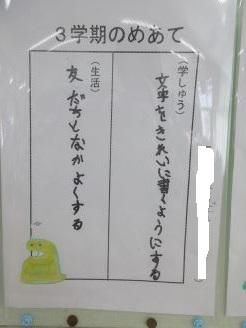 3学期のめあて
（学しゅう）
文字をきれいに書くようにする
（生活）
友だちとなかよくする